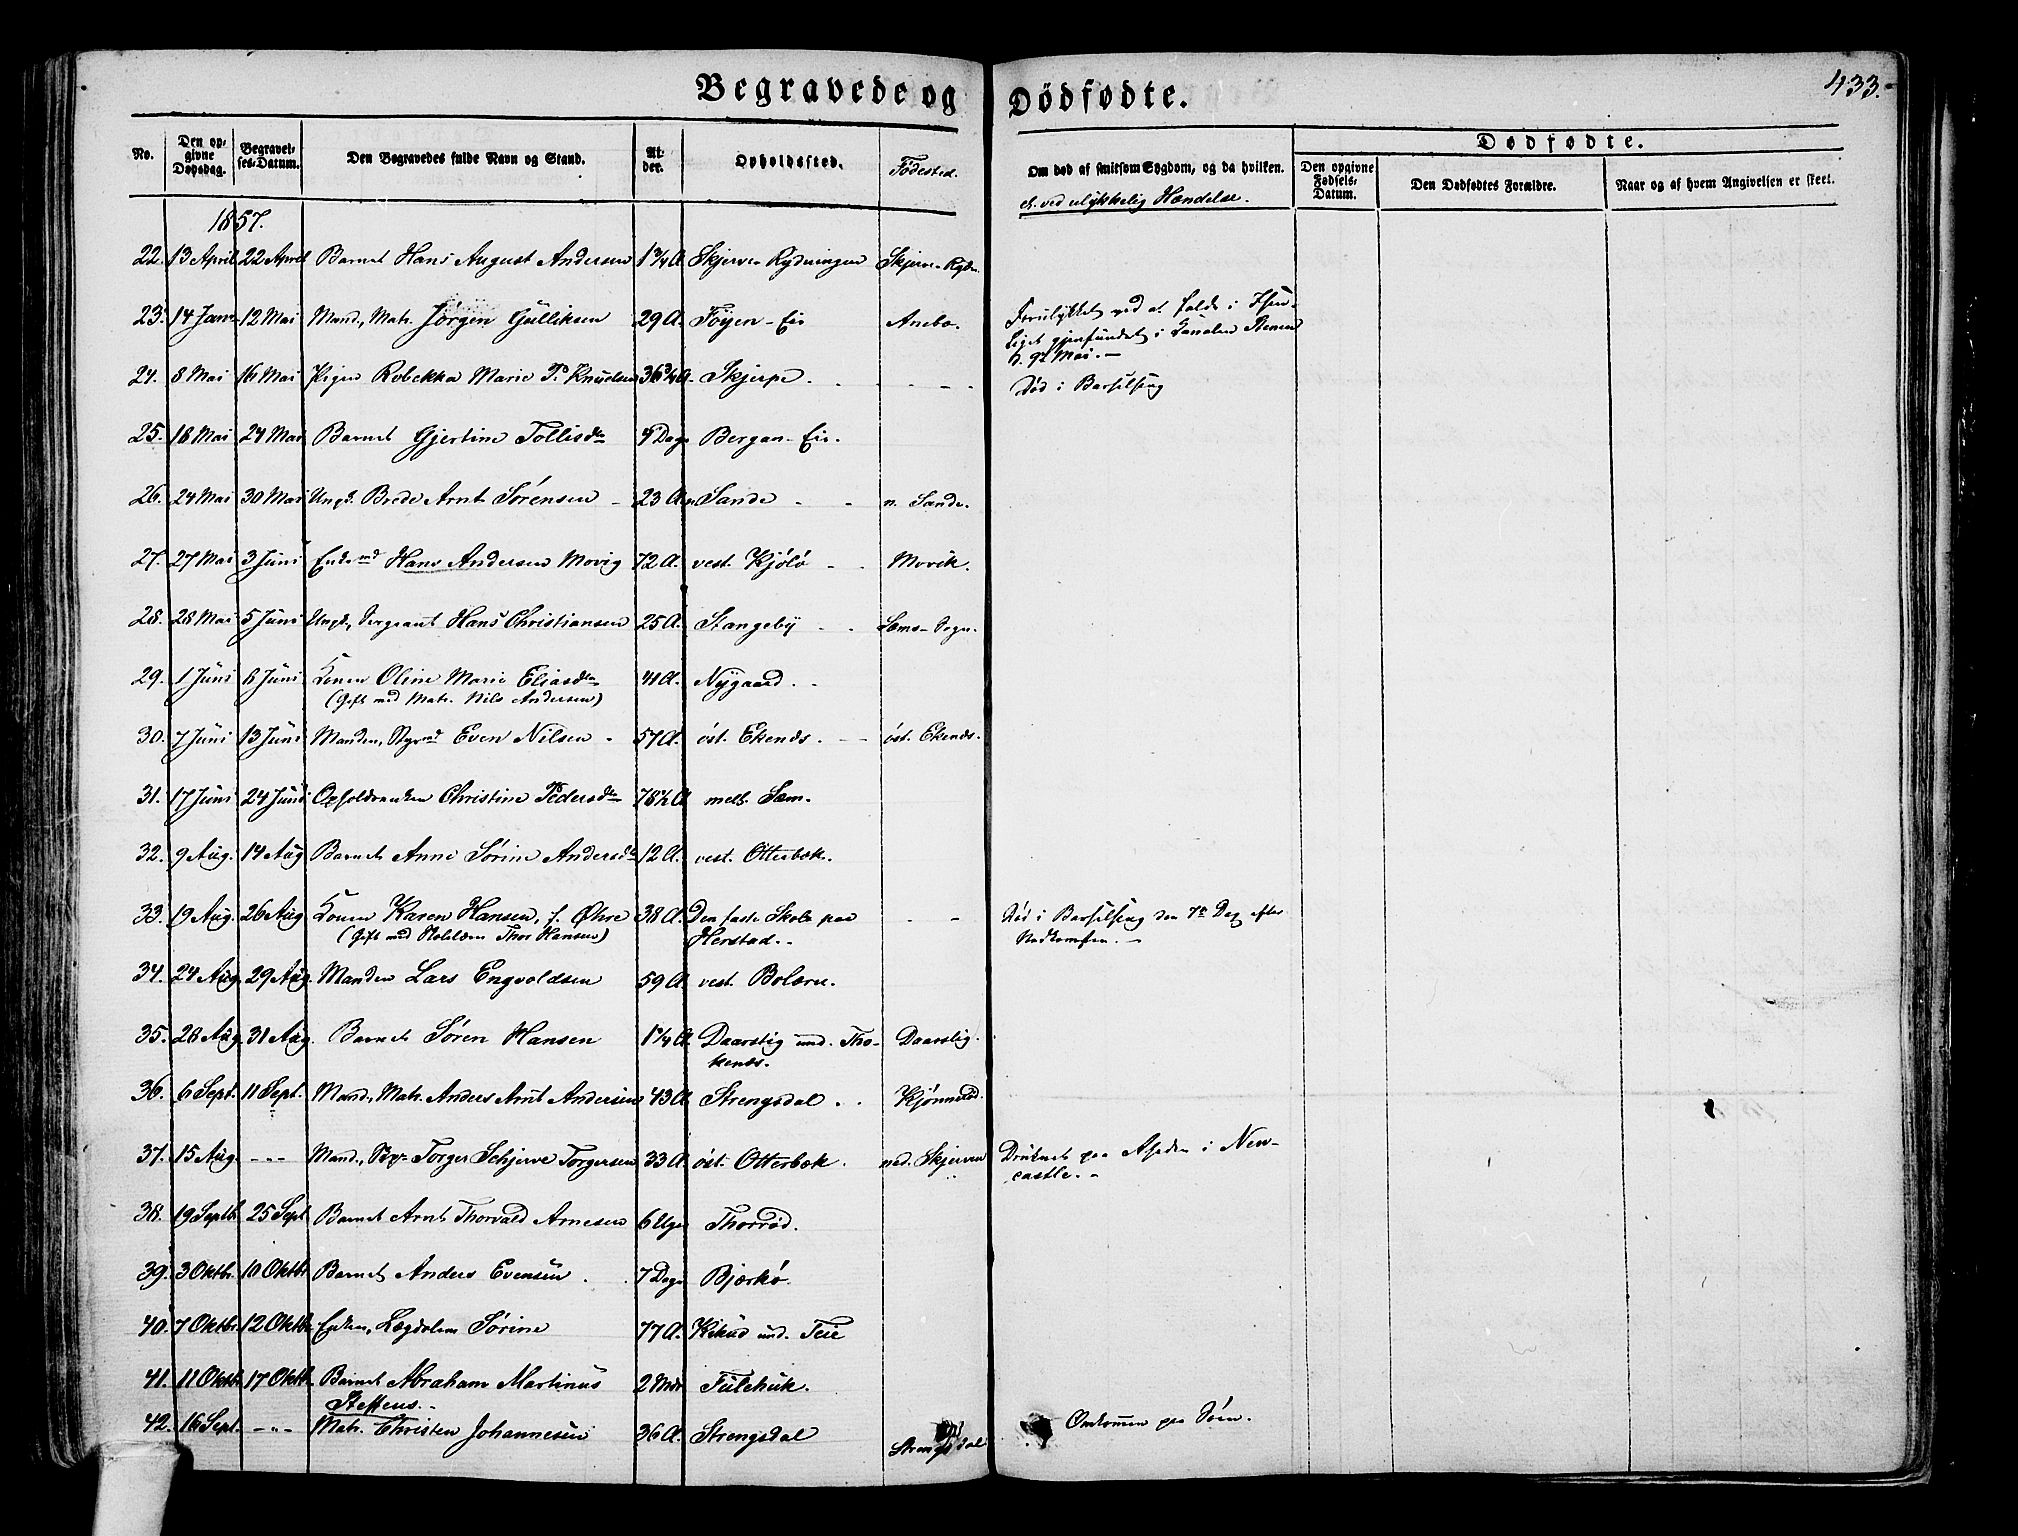 Begravede og Dödfödte.
433.
No. Den opgivne Dødsdag. Begravelses-Datum. Den Begravedes fulde Navn og Stand. Alder. Opholdssted. Fødested. Om død af smitsom Sygdom, og da hvilken. el. ved ulykkelig Hændelse.
Dødfødte.
Den opgivne Fødsels-Datum. Den Dødfødtes Forældre. Naar og af hvem Angivelsen er skeet.
1857.
22. 13 April 22 April Barnet Hans August Andersen 1 3/4 A Skjerve Rydningen Skjerve Rydn.
23. 14 Janr 12 Mai Mand, Matr. Jørgen Gulliksen 29 A. Föyen - Eie Anebo. Forulykket ved at falde i
gjenfundet i Canalen
d. 9de Mai. -
24. 8 Mai 16 Mai Pigen Rebekka Marie Knudsen 36 3/4 A. Skjerpe . - - - Død i Barselseng
25. 18 Mai 24 Mai Barnet Gjertine Tollisdtr 4 Dage Bergan - Eie.
26. 24 Mai 30 Mai Ungk. Brede Arnt Sørensen - 23 A. n. Sande - - n. Sande.
27. 27 Mai 3 Juni Enkemd Hans Andersen Movig 72 A. vest. Kjölö - . Movik.
28. 28 Mai 5 Juni Ungk., Sergeant Hans Christiansen 25 A. Stangeby - . Sems - Sogn.
29. 1 Juni 8 Juni Konen Oline Marie Eliasdtr 41 A. Nygaard. -
(Gift med Matr. Nils Andersen)
30. 7 Juni 13 Juni Manden, Styrmd Even Nilsen - 57 A. öst. Ekenæs. - öst. Ekenæs.
31. 17 Juni 24 Juni Opholdsenken Christine Pedersdtr 78 1/2 A mell. Sem.
32. 9 Aug. 14 Aug Barnet Anne Sørine Andersdtr 12 A. vest. Otterbæk.
33. 19 Aug. 26 Aug Konen Karen Hansen, f. Øhre 38 A. Den faste Skole paa - - Død i Barselseng den 7de Dag efter
(Gift med Skolelærer Thor Hansen) Herstad. - Nedkomsten. -
34. 24 Aug. 29 Aug. Manden Lars Engvoldsen 59 A. vest. Bolærn.
35. 28 Aug. 31 Aug. Barnet Søren Hansen 1 1/4 A. Daarslig und. Tho- Daarslig.
kenæs.
36. 6 Sept. 11 Sept. Mand., Matr. Anders Arnt Andersen 43 A. Strengsdal . . Kjönneröd.
37. 15 Aug. - " - Mand., Torger Schjerve Torgersen 33 A. öst. Otterbæk . ned. Skjerven Druknet paa i New-
castle. -
38. 19 Septb. 25 Sept Barnet Arnt Thorvald Arnesen 6 Uger Thorröd.
39. 3 Oktbr. 10 Oktbr Barnet Anders Evensen . . 7 Dage Bjærkö.
40. 7 Oktbr. 12 Oktbr. Enken, Lægdslem Sørine 77 A. und. Teie
41. 11 Oktb. 17 Oktb. Barnet Abraham Martinus 2 Mdr Fulehuk.
Steffens. -
42. 16 Sept. - " - Matr. Christen Johannesen 36 A. Strengsdal Strengsdal Omkommen paa Søen.